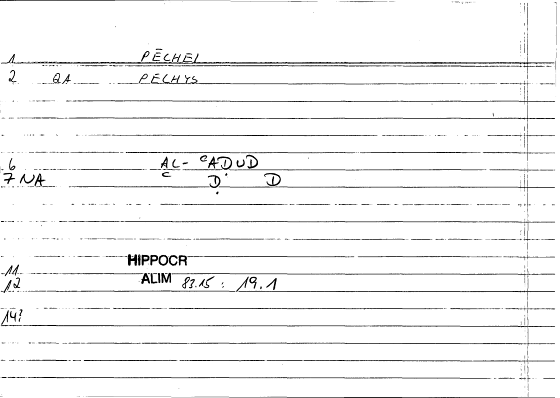 1 PĒCHEI
2 QA PECHYS
6 AL- ᶜAḌUD
7 NA C Ḍ D
11 HIPPOCR
12 ALIM 83.15 : 19.1
14?